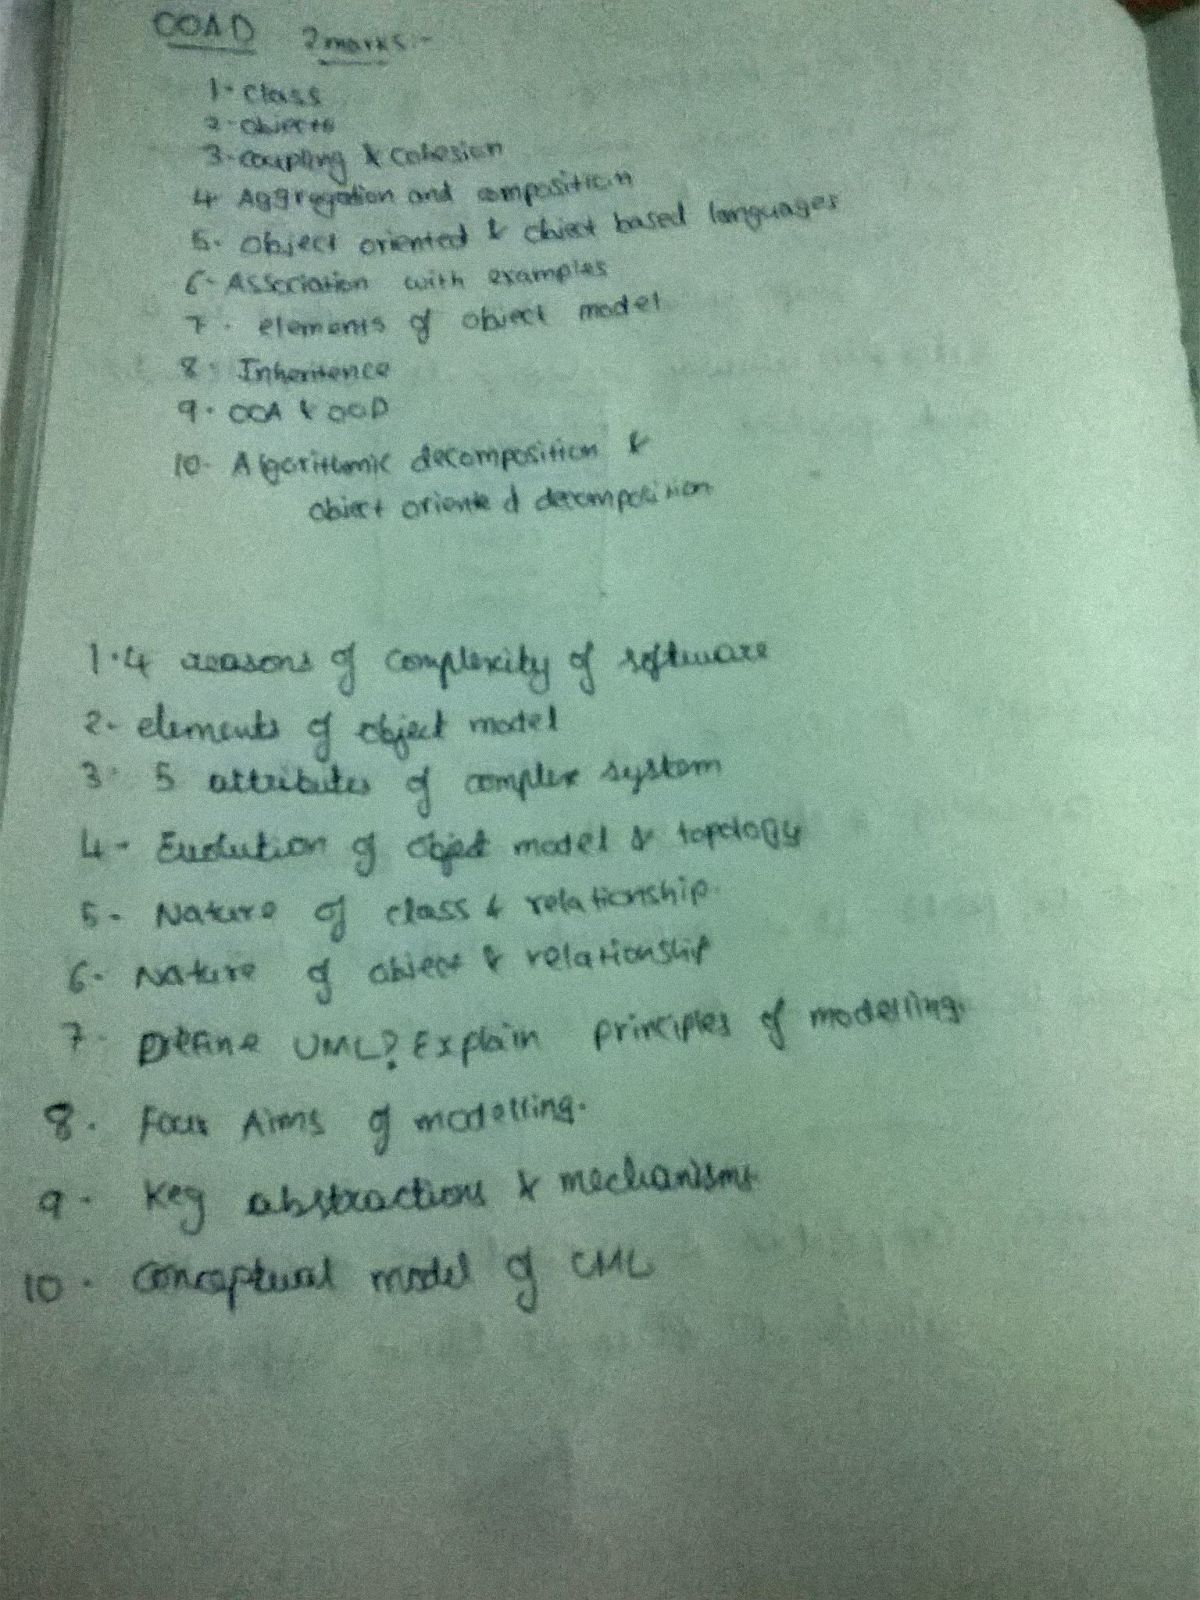 OOAD 2marks:-
1. class
2. objects
3. coupling & cohesion
4. Aggregation and composition
5. object oriented & object based languages
6. Association with examples
7. elements of object model
8. Inheritence
9. OOA & OOD
10. Algorithmic decomposition &
object oriented decomposition
1. 4 reasons of complexity of software
2. elements of object model
3. 5 attributes of complex system
4. Evolution of object model & topology
5. Nature of class & relationship.
6. Nature of object & relationship
7. Define UML? Explain principles of modelling.
8. Four Aims of modelling.
9. Key abstractions & mechanisms
10. Conceptual model of UML